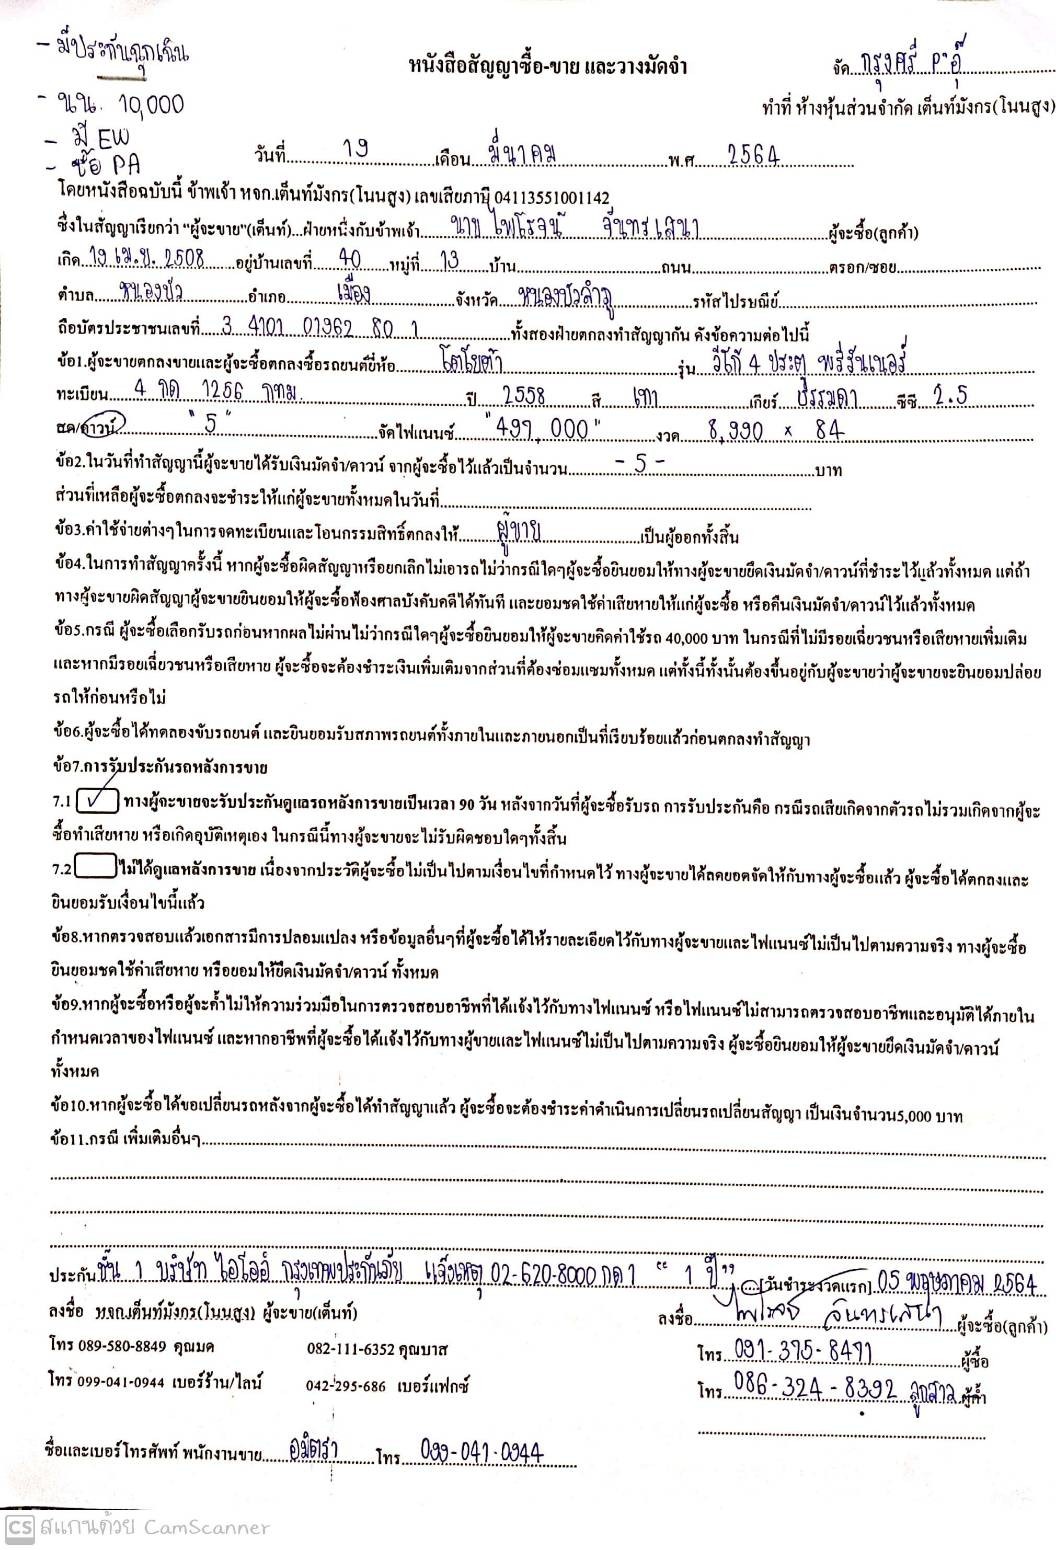 - มีประกันฉุกเฉิน
- นน. 10,000
- มี EW
- ซื้อ PA
หนังสือสัญญาซื้อ-ขาย และวางมัดจำ
จัด กรุงศรี P'อุ๊
ทำที่ ห้างหุ้นส่วนจำกัด เต็นท์มังกร(โนนสูง)
วันที่ 19 เดือน มีนาคม พ.ศ 2564
โดยหนังสือฉบับนี้ ข้าพเจ้า หจก.เต็นท์มังกร(โนนสูง) เลขเสียภาษี 04113551001142
ซึ่งในสัญญาเรียกว่า "ผู้จะขาย"(เต็นท์)...ฝ่ายหนึ่งกับข้าพเจ้า นาย ไพโรจน์ จันทรเสนา ผู้จะซื้อ(ลูกค้า)
เกิด 19 เม.ย. 2508 อยู่บ้านเลขที่ 40 หมู่ที่ 13 บ้าน ถนน ตรอก/ซอย
ตำบล หนองบัว อำเภอ เมือง จังหวัด หนองบัวลำภู รหัสไปรษณีย์
ถือบัตรประชาชนเลขที่ 3 4101 01962 80 1 ทั้งสองฝ่ายตกลงทำสัญญากัน ดังข้อความต่อไปนี้
ข้อ1.ผู้จะขายตกลงขายและผู้จะซื้อตกลงซื้อรถยนต์ยี่ห้อ โตโยต้า รุ่น วีโก้ 4 ประตู พรีรันเนอร์
ทะเบียน 4 กด 1256 กทม. ปี 2558 สี เทา เกียร์ ธรรมดา ซีซี 2.5
สด/ดาวน์ "5" จัดไฟแนนซ์ "499,000" งวด 8,990 × 84
ข้อ2.ในวันที่ทำสัญญานี้ผู้จะขายได้รับเงินมัดจำ/ดาวน์ จากผู้จะซื้อไว้แล้วเป็นจำนวน - 5 - บาท
ส่วนที่เหลือผู้จะซื้อตกลงจะชำระให้แก่ผู้จะขายทั้งหมดในวันที่
ข้อ3.ค่าใช้จ่ายต่างๆในการจดทะเบียนและโอนกรรมสิทธิ์ตกลงให้ ผู้ขาย เป็นผู้ออกทั้งสิ้น
ข้อ4.ในการทำสัญญาครั้งนี้ หากผู้จะซื้อผิดสัญญาหรือยกเลิกไม่เอารถไม่ว่ากรณีใดๆผู้จะซื้อยินยอมให้ทางผู้จะขายยึดเงินมัดจำ/ดาวน์ที่ชำระไว้แล้วทั้งหมด แต่ถ้า
ทางผู้จะขายผิดสัญญาผู้จะขายยินยอมให้ผู้จะซื้อฟ้องศาลบังคับคดีได้ทันที และยอมชดใช้ค่าเสียหายให้แก่ผู้จะซื้อ หรือคืนเงินมัดจำ/ดาวน์ไว้แล้วทั้งหมด
ข้อ5.กรณี ผู้จะซื้อเลือกรับรถก่อนหากผลไม่ผ่านไม่ว่ากรณีใดๆผู้จะซื้อยินยอมให้ผู้จะขายคิดค่าใช้รถ 40,000 บาท ในกรณีที่ไม่มีรอยเฉี่ยวชนหรือเสียหายเพิ่มเติม
และหากมีรอยเฉี่ยวชนหรือเสียหาย ผู้จะซื้อจะต้องชำระเงินเพิ่มเติมจากส่วนที่ต้องซ่อมแซมทั้งหมด แต่ทั้งนี้ทั้งนั้นต้องขึ้นอยู่กับผู้จะขายว่าผู้จะขายจะยินยอมปล่อย
รถให้ก่อนหรือไม่
ข้อ6.ผู้จะซื้อได้ทดลองขับรถยนต์ และยินยอมรับสภาพรถยนต์ทั้งภายในและภายนอกเป็นที่เรียบร้อยแล้วก่อนตกลงทำสัญญา
ข้อ7.การรับประกันรถหลังการขาย
7.1 ✓ ทางผู้จะขายจะรับประกันดูแลรถหลังการขายเป็นเวลา 90 วัน หลังจากวันที่ผู้จะซื้อรับรถ การรับประกันคือ กรณีรถเสียเกิดจากตัวรถไม่รวมเกิดจากผู้จะ
ซื้อทำเสียหาย หรือเกิดอุบัติเหตุเอง ในกรณีนี้ทางผู้จะขายจะไม่รับผิดชอบใดๆทั้งสิ้น
7.2 ไม่ได้ดูแลหลังการขาย เนื่องจากประวัติผู้จะซื้อไม่เป็นไปตามเงื่อนไขที่กำหนดไว้ ทางผู้จะขายได้ลดยอดจัดให้กับทางผู้จะซื้อแล้ว ผู้จะซื้อได้ตกลงและ
ยินยอมรับเงื่อนไขนี้แล้ว
ข้อ8.หากตรวจสอบแล้วเอกสารมีการปลอมแปลง หรือข้อมูลอื่นๆที่ผู้จะซื้อได้ให้รายละเอียดไว้กับทางผู้จะขายและไฟแนนซ์ไม่เป็นไปตามความจริง ทางผู้จะซื้อ
ยินยอมชดใช้ค่าเสียหาย หรือยอมให้ยึดเงินมัดจำ/ดาวน์ ทั้งหมด
ข้อ9.หากผู้จะซื้อหรือผู้จะค้ำไม่ให้ความร่วมมือในการตรวจสอบอาชีพที่ได้แจ้งไว้กับทางไฟแนนซ์ หรือไฟแนนซ์ไม่สามารถตรวจสอบอาชีพและอนุมัติได้ภายใน
กำหนดเวลาของไฟแนนซ์ และหากอาชีพที่ผู้จะซื้อได้แจ้งไว้กับทางผู้ขายและไฟแนนซ์ไม่เป็นไปตามความจริง ผู้จะซื้อยินยอมให้ผู้จะขายยึดเงินมัดจำ/ดาวน์
ทั้งหมด
ข้อ10.หากผู้จะซื้อได้ขอเปลี่ยนรถหลังจากผู้จะซื้อได้ทำสัญญาแล้ว ผู้จะซื้อจะต้องชำระค่าดำเนินการเปลี่ยนรถเปลี่ยนสัญญา เป็นเงินจำนวน5,000 บาท
ข้อ11.กรณี เพิ่มเติมอื่นๆ
ประกัน ชั้น 1 บริษัท ไอโออิ กรุงเทพประกันภัย แจ้งเหตุ 02-620-8000 กด 1 "1 ปี" (วันชำระงวดแรก) 05 พฤษภาคม 2564
ลงชื่อ หจก.เต็นท์มังกร(โนนสูง) ผู้จะขาย(เต็นท์)
ลงชื่อ ไพโรจน์ จันทรเสนา ผู้จะซื้อ(ลูกค้า)
โทร 089-580-8849 คุณมด 082-111-6352 คุณบาส
โทร 091-375-8471 ผู้ซื้อ
โทร 099-041-0944 เบอร์ร้าน/ไลน์ 042-295-686 เบอร์แฟกซ์
โทร 086-324-8392 ลูกสาว ผู้ค้ำ
ชื่อและเบอร์โทรศัพท์ พนักงานขาย อมิตรา โทร 099-041-0944
CS สแกนด้วย CamScanner